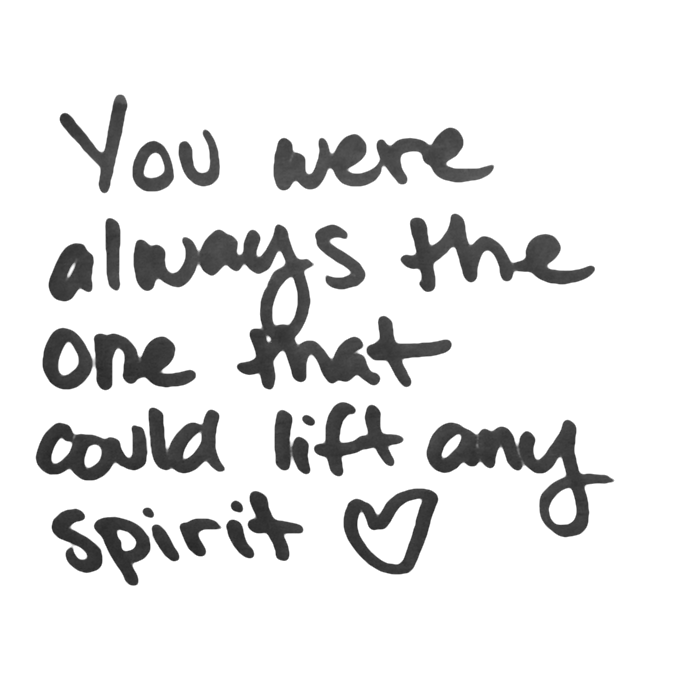 You were
always the
one that
could lift any
spirit ♡